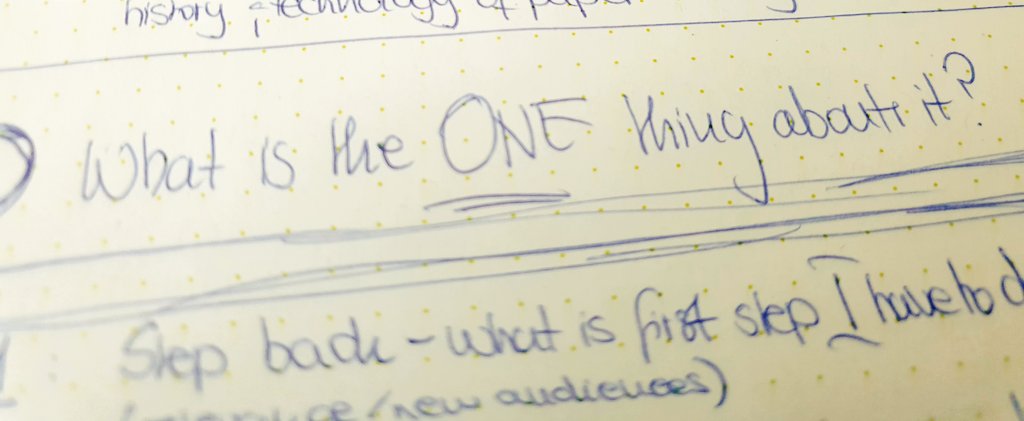 history, technology of paper
What is the ONE thing about it?
Step back - what is first step I have to
/new audiences)